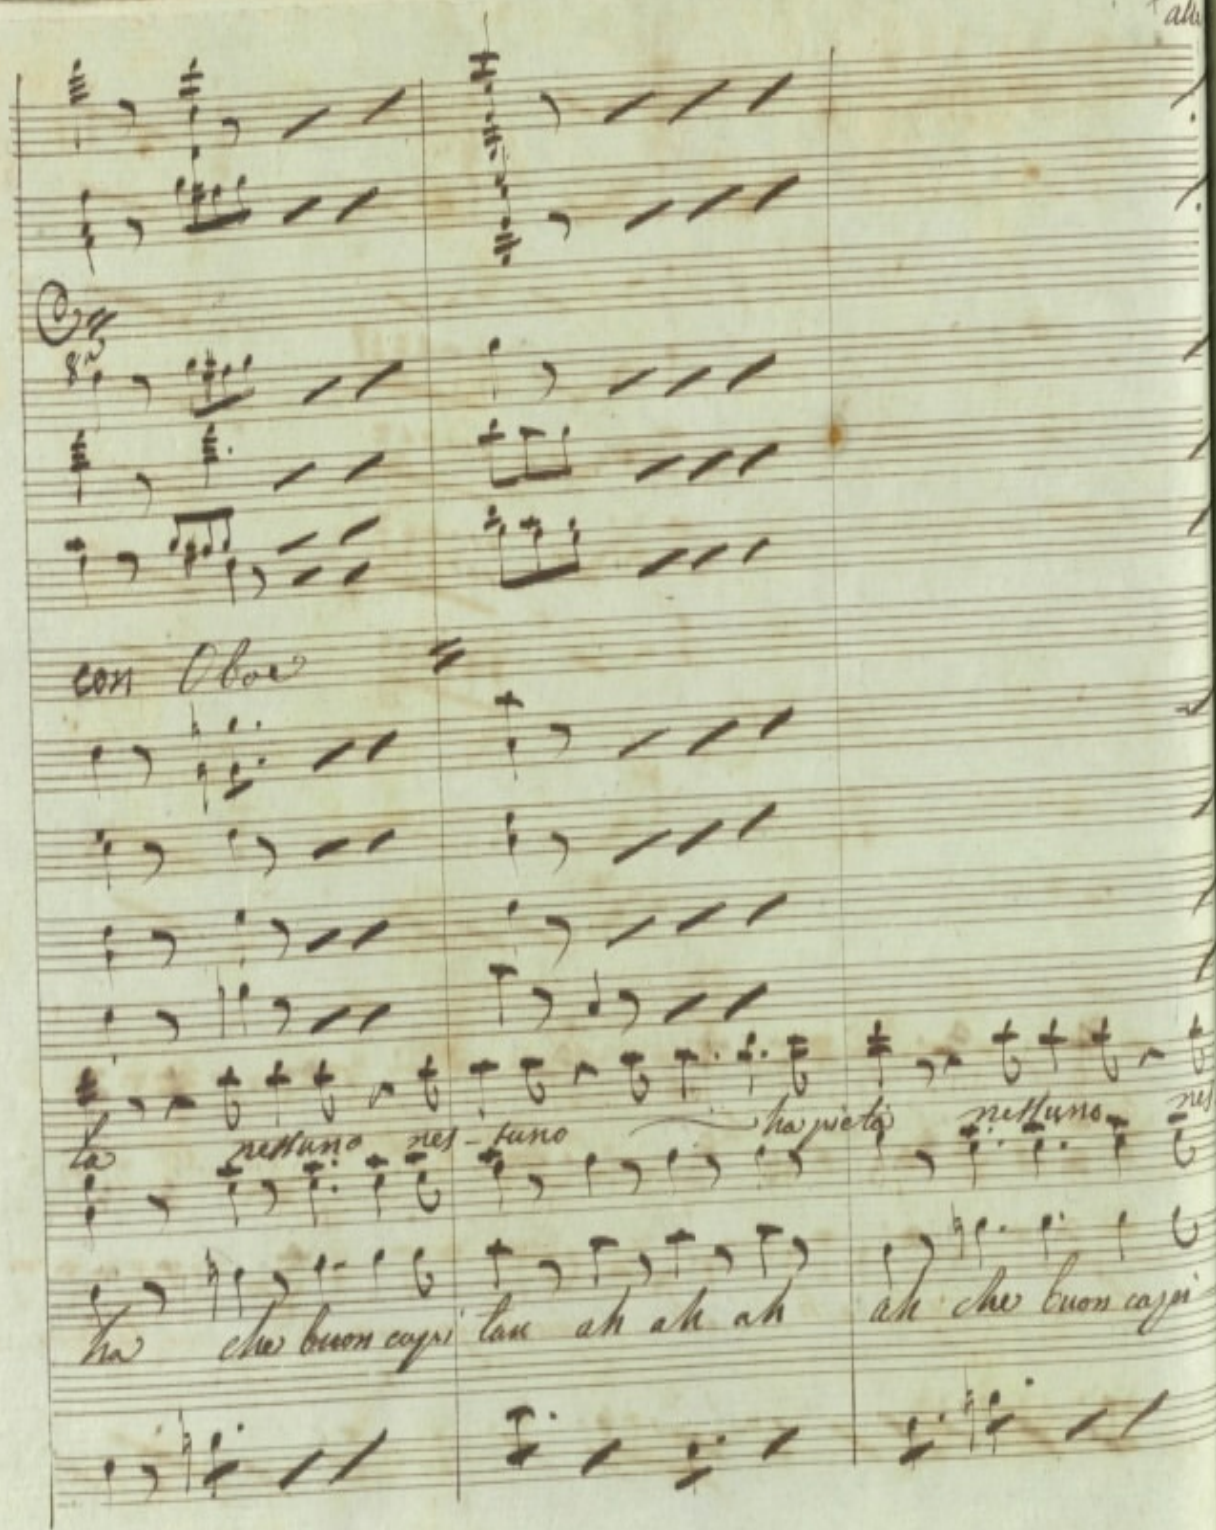 all
8va
con Oboe
ta nessuno nes-suno ha pietà nessuno nes
ha che buon capi tan ah ah ah ah che buon capi